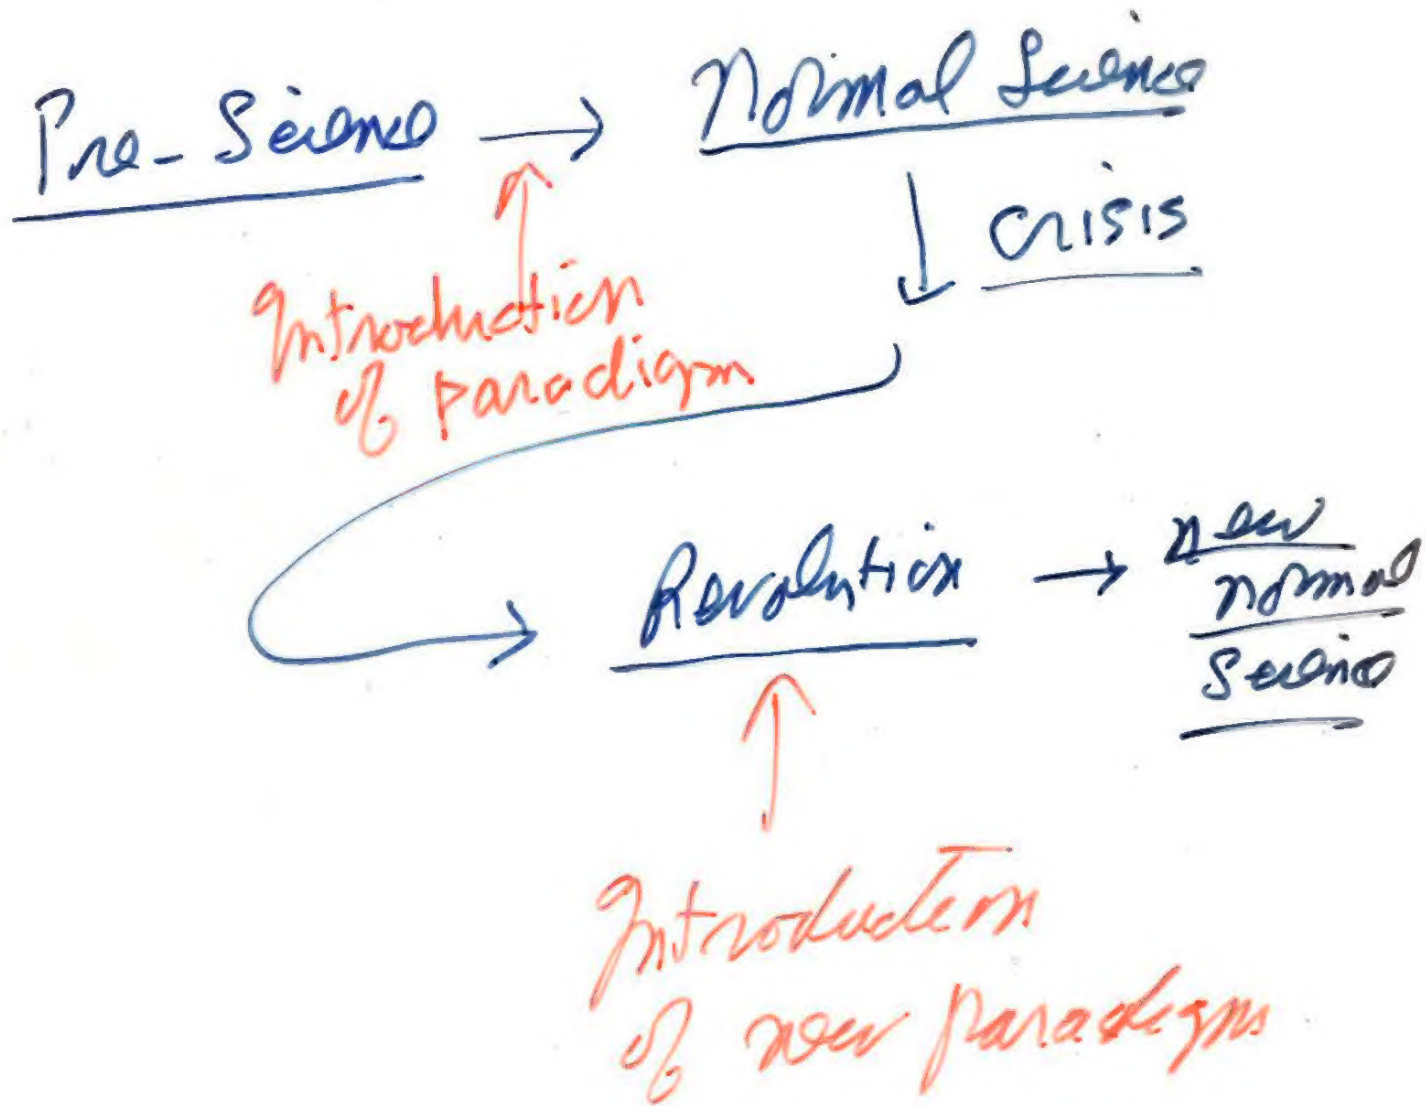 Pre-Science → Normal Science
crisis
Introduction
of paradigm
Revolution → new
normal
Science
Introduction
of new paradigm